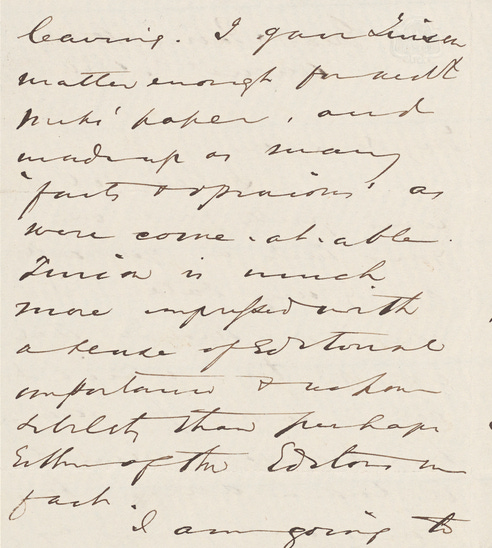 leaving. I gave Linicn
matter enough for next
wks' paper, and
made up as many
'facts & opinions' as
were come-at-able.
is much
more impressed with
a sense of Editorial
importance & respon
sibility than perhaps
Either of the Editors in
fact.
I am going to